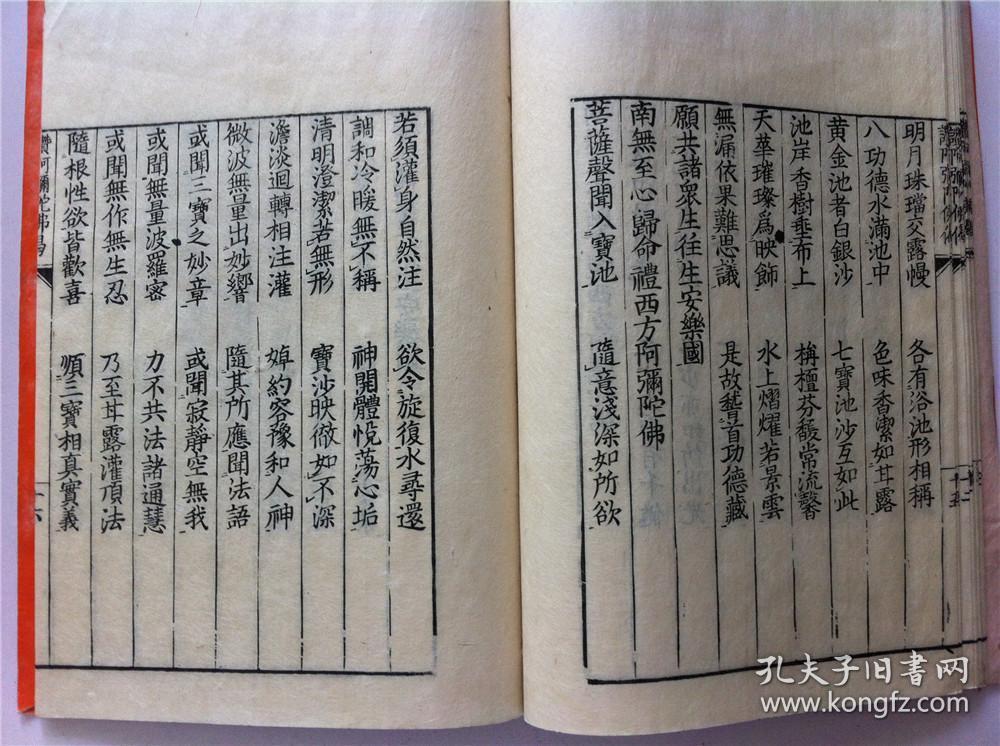 明月珠璫交露幔　各有浴池形相稱
八功德水滿池中　色味香潔如甘露
黄金池者白銀沙　七寶池沙互如此
池岸香樹垂布上　栴檀芬馥常流馨
天華璀璨爲映飾　水上熠燿若景雲
無漏依果難思議　是故稽首功德藏
願共諸衆生往生安樂國
南無至心歸命禮西方阿彌陀佛
菩薩聲聞入寶池　隨意淺深如所欲
若須灌身自然注　欲令旋復水尋還
調和冷暖無不稱　神開體悅蕩心垢
清明澄潔若無形　寶沙映徹如不深
澹淡迴轉相注灌　婥約容豫和人神
微波無量出妙響　隨其所應聞法語
或聞三寶之妙章　或聞寂靜空無我
或聞無量波羅密　力不共法諸通慧
或聞無作無生忍　乃至甘露灌頂法
隨根性欲皆歡喜　順三寶相真實義
讚阿彌陀佛偈
十六
孔夫子旧书网
www.kongfz.com